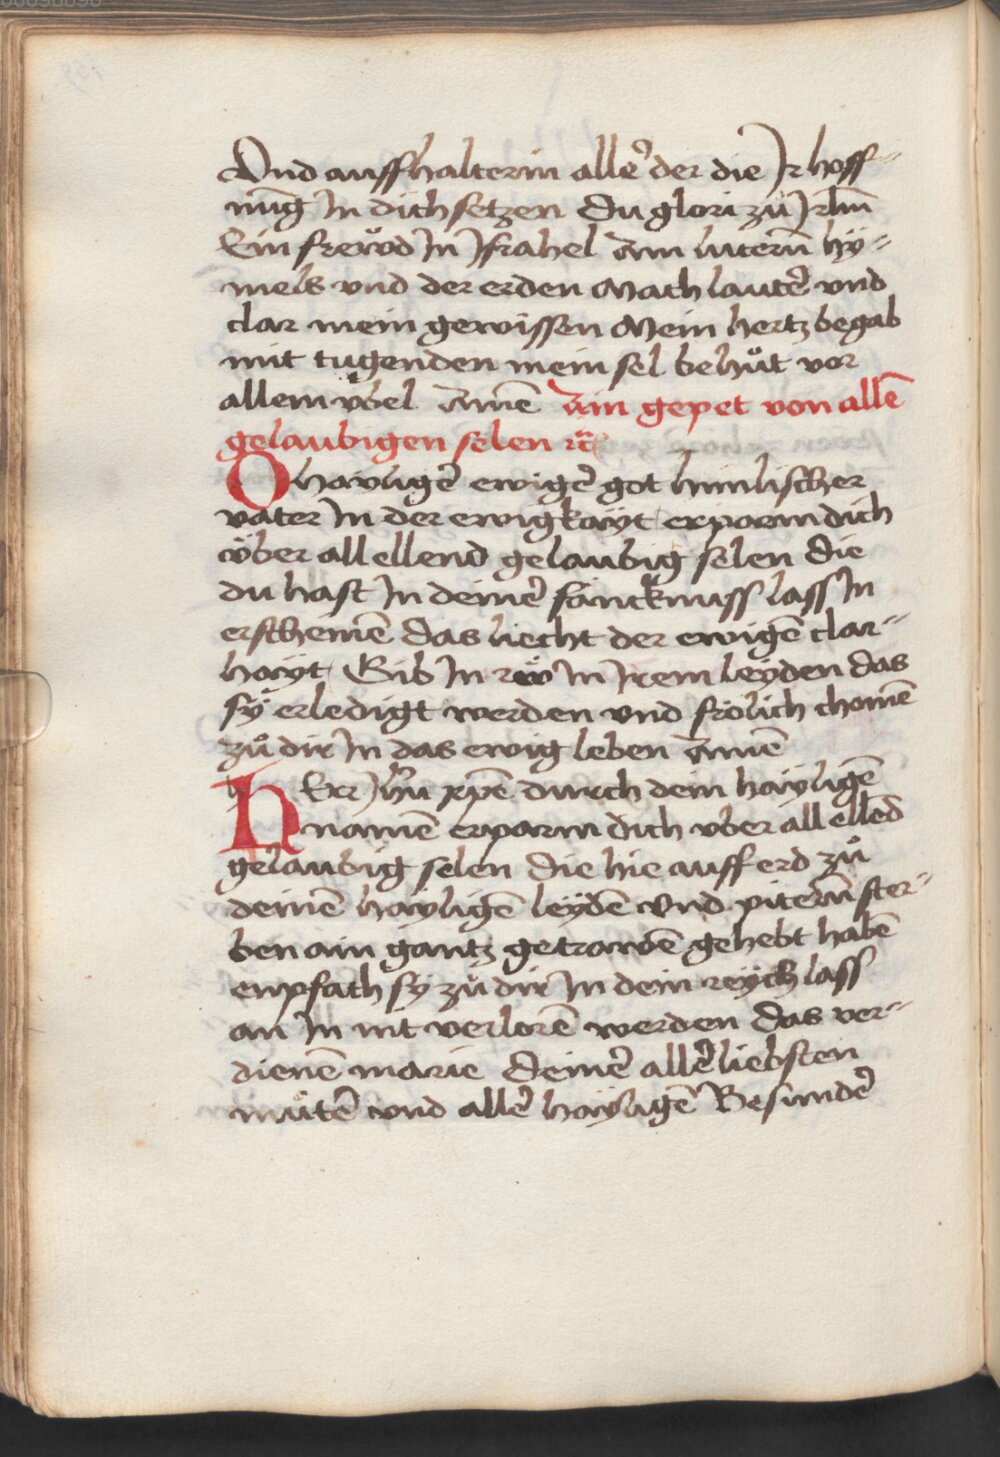 Vnd auffhalterin alleˀ der die Jr hoff⸗
nūg In dich setzen Du glori zů Jrlm̄
Ein frewd In Jsrahel Ain lucern hÿ⸗
mels vnd der erden Mach lauteˀ vnd
clar mein gewissen Mein hertz begab
mit tugenden mein sel behůt vor
allem vbel Amē Ain gepet von allē
gelaubigen selen ꝛc̄
O hayligeˀ ewigeˀ got himlischer
vater In der ewigkayt erparm dich
vͤber all ellend gelaubig selen Die
du hast In deineˀ fanckknuss lass In
erscheinē das liecht der ewigē clar⸗
hayt Gib In rẅ In irem leyden das
sÿ erledigt werden vnd frölich chomē
zů dir In das ewig leben Amē
HErr Jh̄u xp̄e durch dein hayligē
namē erparm dich vber all ellēd
gelaubig selen Die hie auff erd zů
deinē hayligē leydē vnd pitern̄ ster⸗
ben ain gantz getrawē gehebt habē
empfach sy zů dir In dein reych lass
an In nit verlorē werden Das ver⸗
dienē marie Deineˀ alleˀliebsten
můteˀ vnd alleˀ hayligē Besundeˀ